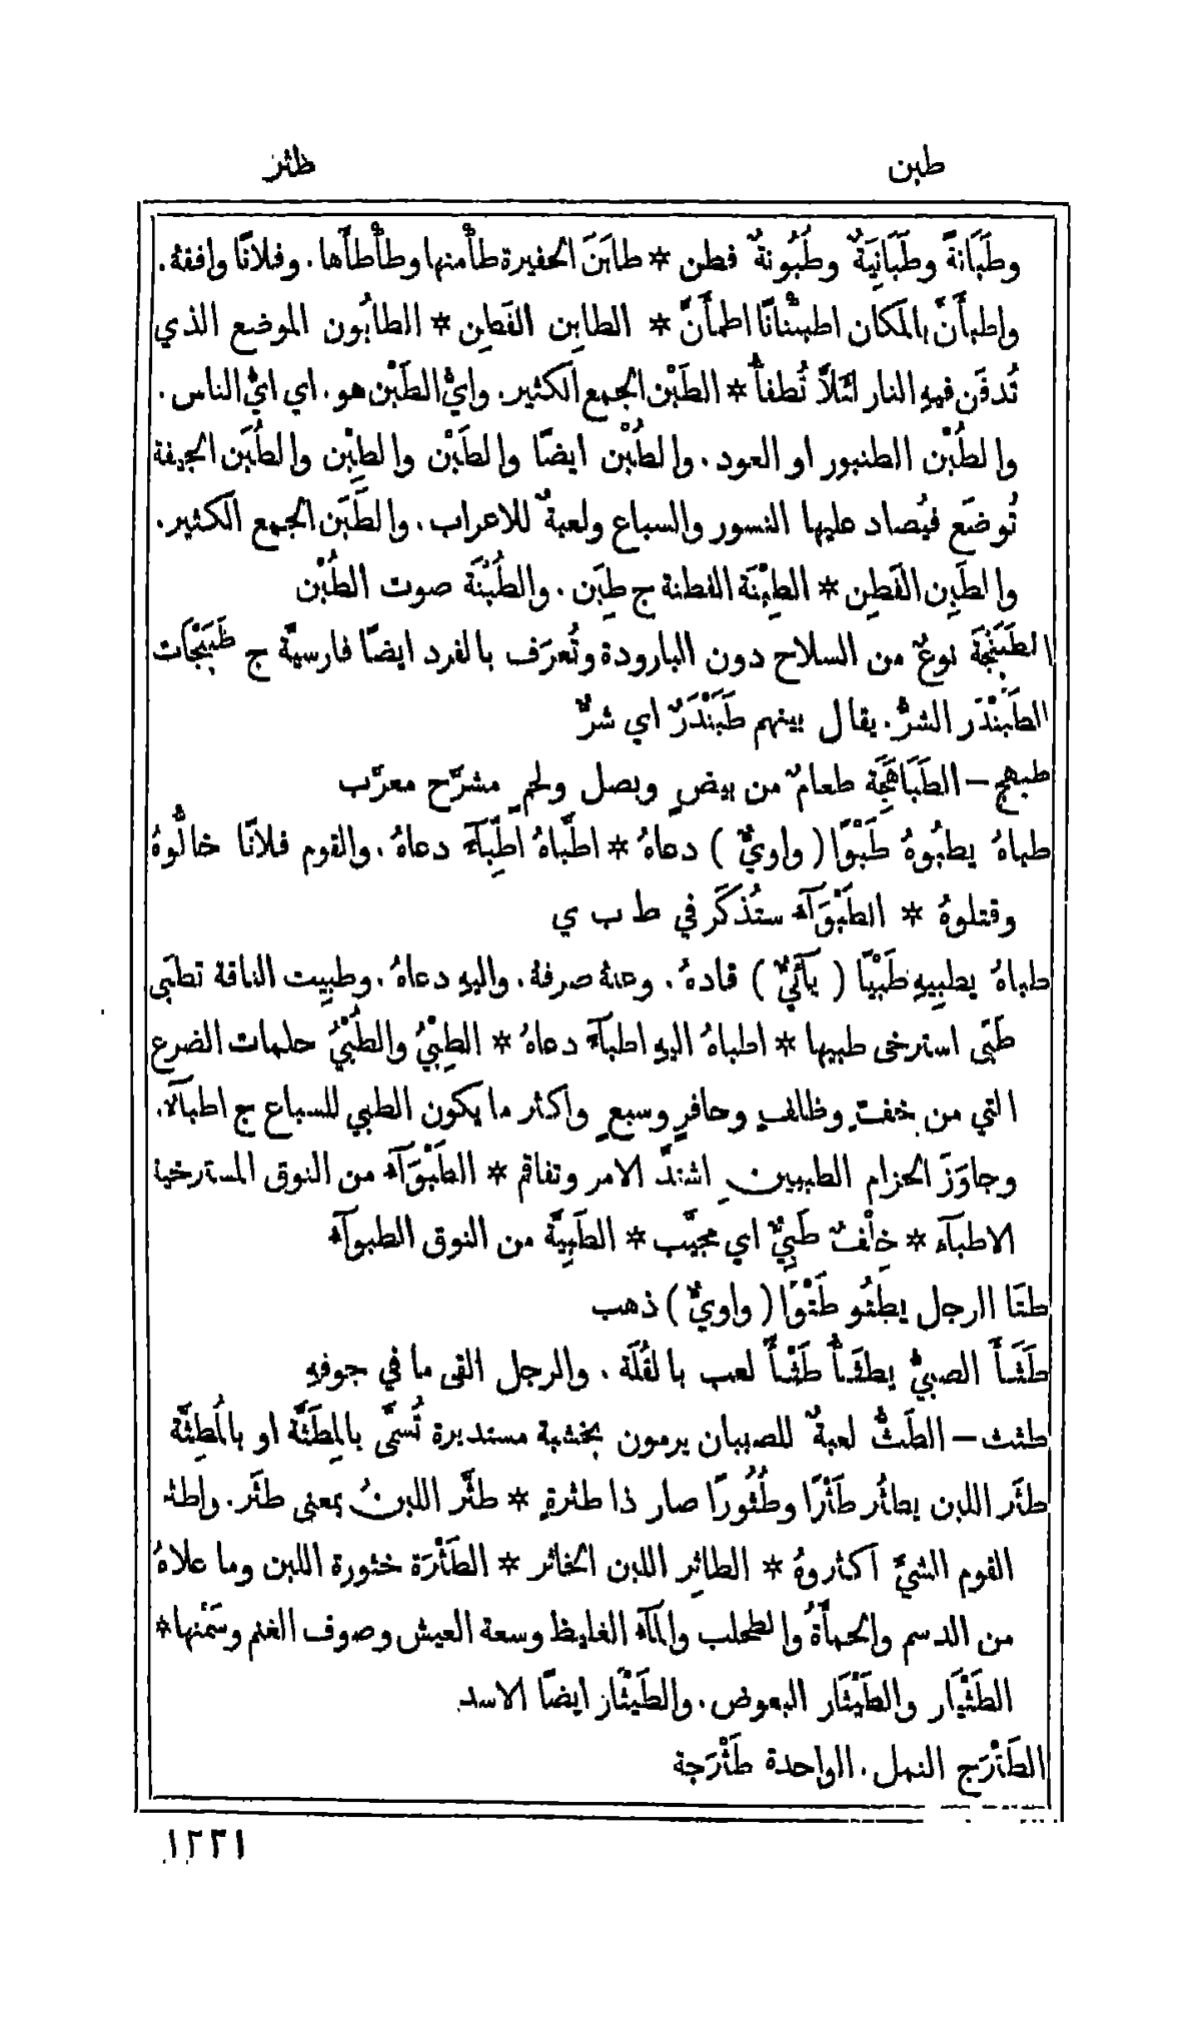 طبن
طثر
وطَبَانةً وطَبَانِيَةٌ وطُبُونةٌ فطن * طابَنَ الحفيرة طأْمنها وطأْطأَها. وفلانًا وافقهُ.
واطبأَنَّ بالمكان اطبئْنانًا اطمأَنَّ * الطابِن الفَطِن * الطابُون الموضع الذي
تُدفَن فيهِ النار لئلَّا تُطفأَ * الطَبْن الجمع الكثير. وايُّ الطَبْن هو. اي ايُّ الناس.
والطُبْن الطنبور او العود. والطُبْن ايضًا والطَبْن والطِبْن والطُبَن الجيفة
تُوضَع فيُصاد عليها النسور والسباع ولعبةٌ للاعراب. والطَبَن الجمع الكثير.
والطَبِن الفَطِن * الطِبْنَة الفطنة ج طِبَن. والطُبْنَة صوت الطُبْن
الطَبَنْجَة نوعٌ من السلاح دون البارودة وتُعرَف بالفرد ايضًا فارسيَّة ج طَبَنْجَات
الطَبَنْدَر الشرُّ. يقال بينهم طَبَنْدَرٌ اي شرٌّ
طبهج — الطَبَاهَجَة طعامٌ من بيضٍ وبصل ولحمٍ مشرَّح معرَّب
طباهُ يطبُوهُ طَبْوًا (واويٌّ) دعاهُ * اطَّباهُ اطِّبآءً دعاهُ. والقوم فلانًا خالُّوهُ
وقتلوهُ * الطَبْوَآء ستُذكَر في ط ب ي
طباهُ يطبِيهِ طَبْيًا (يآئيٌّ) قادهُ. وعنهُ صرفهُ. واليهِ دعاهُ. وطبِيت الناقة تطبَى
طَبًى استرخى طبيها * اطباهُ اليهِ اطبآءً دعاهُ * الطِبْيُ والطُبْيُ حلمات الضرع
التي من خفٍّ وظلفٍ وحافرٍ وسبعٍ واكثر ما يكون الطبي للسباع ج اطبآء.
وجاوَزَ الحزام الطبيينِ اشتدَّ الامر وتفاقم * الطَبْوَآء من النوق المسترخية
الاطبآء * خِلْفٌ طَبِيٌّ اي مجيَّب * الطَبِيَّة من النوق الطبوآء
طثَا الرجل يطثُو طَثْوًا (واويٌّ) ذهب
طَثَأَ الصبيُّ يطثَأُ طَثْأً لعب بالقُلَة. والرجل القى ما في جوفهِ
طثث — الطَثُّ لعبةٌ للصبيان يرمون بخشبة مستديرة تُسمَّى بالمِطَثَّة او بالمُطِثَّة
طثَر اللبن يطثُر طَثْرًا وطُثُورًا صار ذا طثرةٍ * طثَّر اللبنُ بمعنى طثَر. واطثر
القوم الشيَّ اكثروهُ * الطاثِر اللبن الخاثر * الطَثْرَة خثورة اللبن وما علاهُ
من الدسم والحمأَةُ والطحلب والمآء الغليظ وسعة العيش وصوف الغنم وسَمْنها *
الطَثْيَار والطَيْثَار البعوض. والطَيْثَار ايضًا الاسد
الطَثْرَج النمل. الواحدة طَثْرَجة
١٢٢١